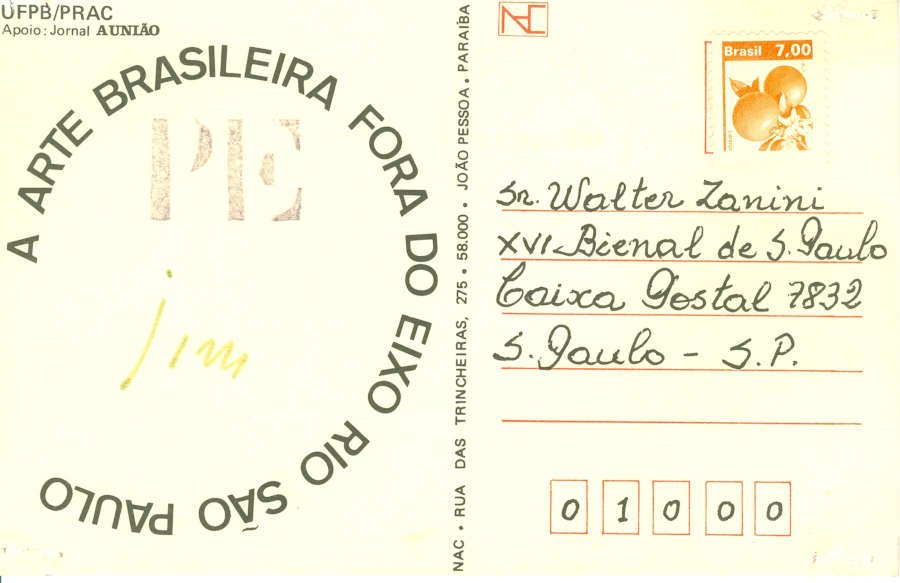 UFPB/PRAC
Apoio: Jornal A UNIÃO
A ARTE BRASILEIRA FORA DO EIXO RIO SÃO PAULO
PE
jim
NAC • RUA DAS TRINCHEIRAS, 275 • 58.000 • JOÃO PESSOA • PARAÍBA
NAC
Brasil 7,00
Sr. Walter Zanini
XVI - Bienal de S. Paulo
Caixa Postal 7832
S. Paulo - S.P.
0 1 0 0 0